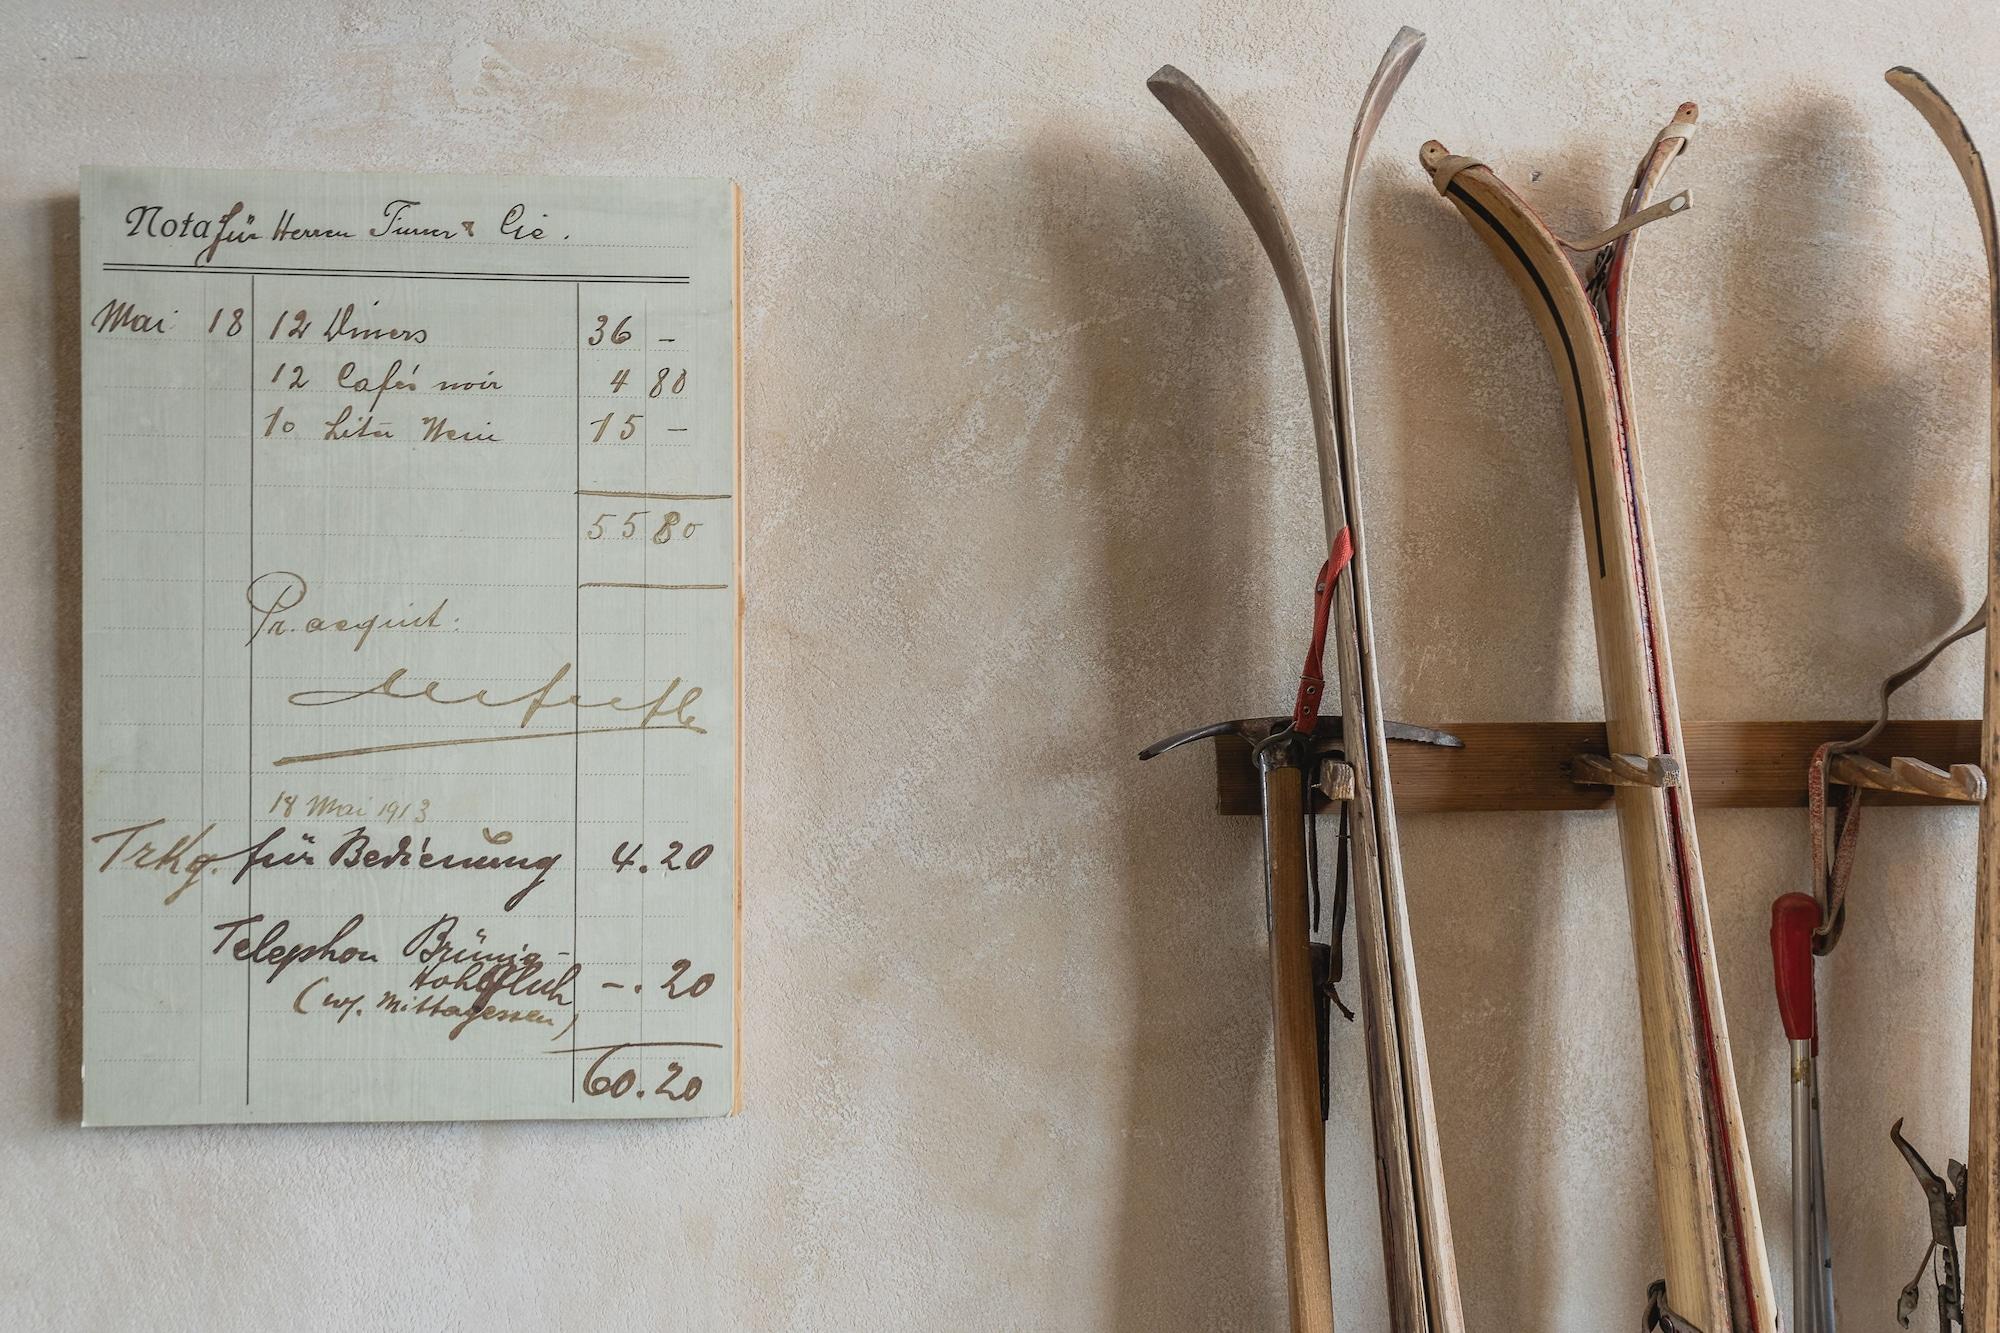 Nota für Herren Turner & Cie.
Mai 18 12 Diners 36 -
12 Cafés noir 4 80
10 Liter Wein 15 -
55 80
Pr. acquit:
18 Mai 1913
Trkg. für Bedienung 4.20
Telephon Brünig-
Hohfluh -.20
(w. Mittagessen)
60.20